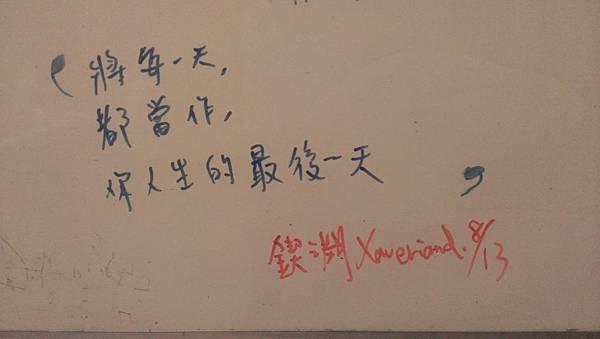 「將每一天,
都當作,
你人生的最後一天」
8/13